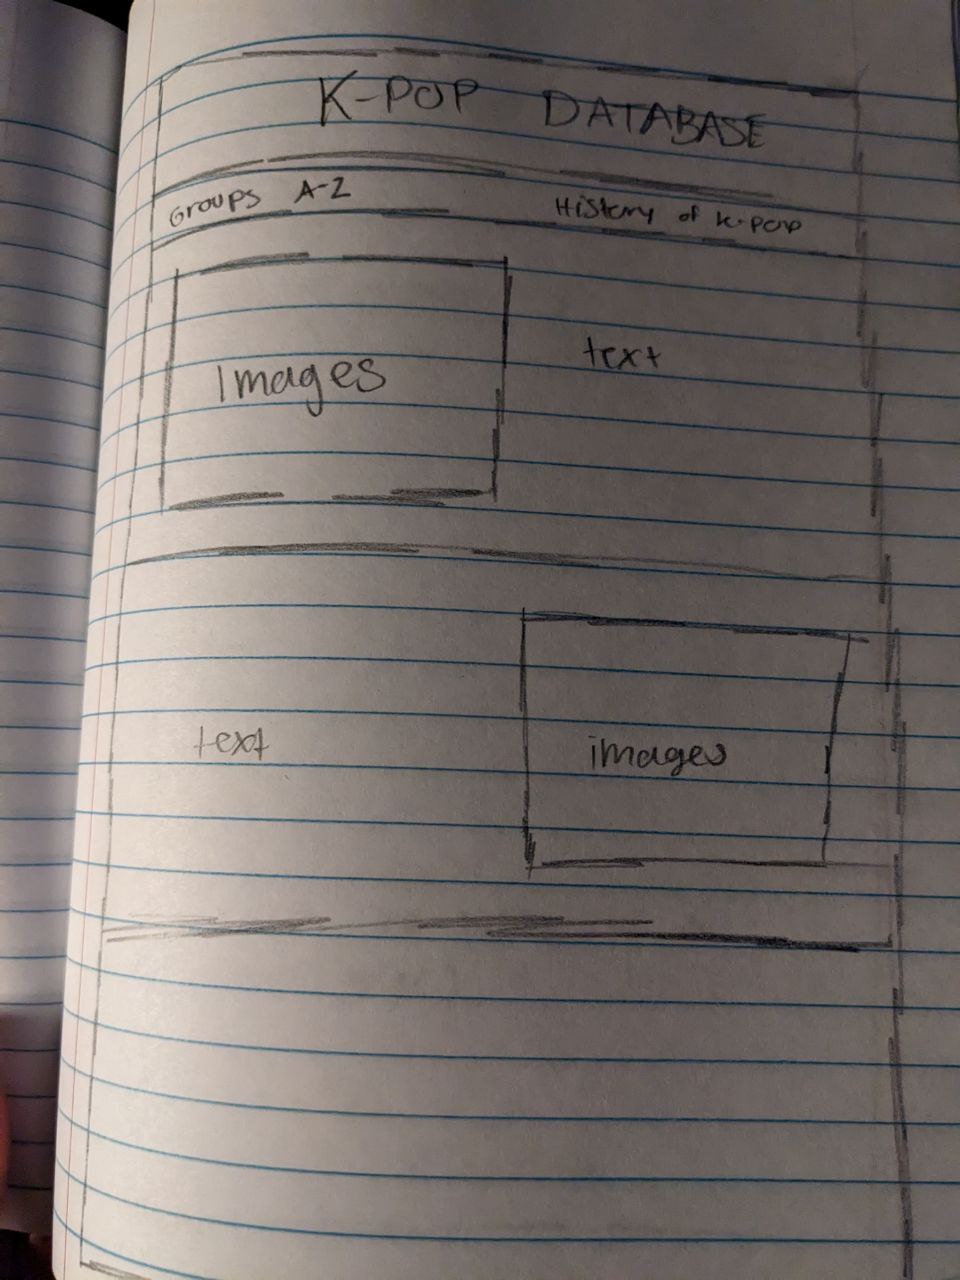 K-POP DATABASE
Groups A-Z History of K-pop
Images text
text images